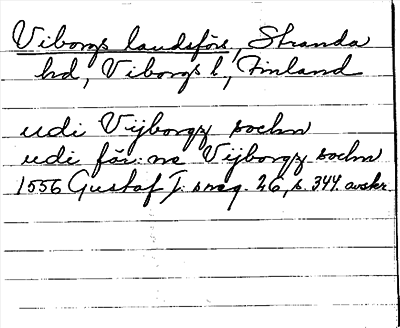 Viborgs landsförs, Stranda
hd, Viborgs l, Finland
udi Vijborgz sochn
udi för:ne Vijborgz sochn
1556 Gustaf I:s reg. 26, s. 344. avskr.